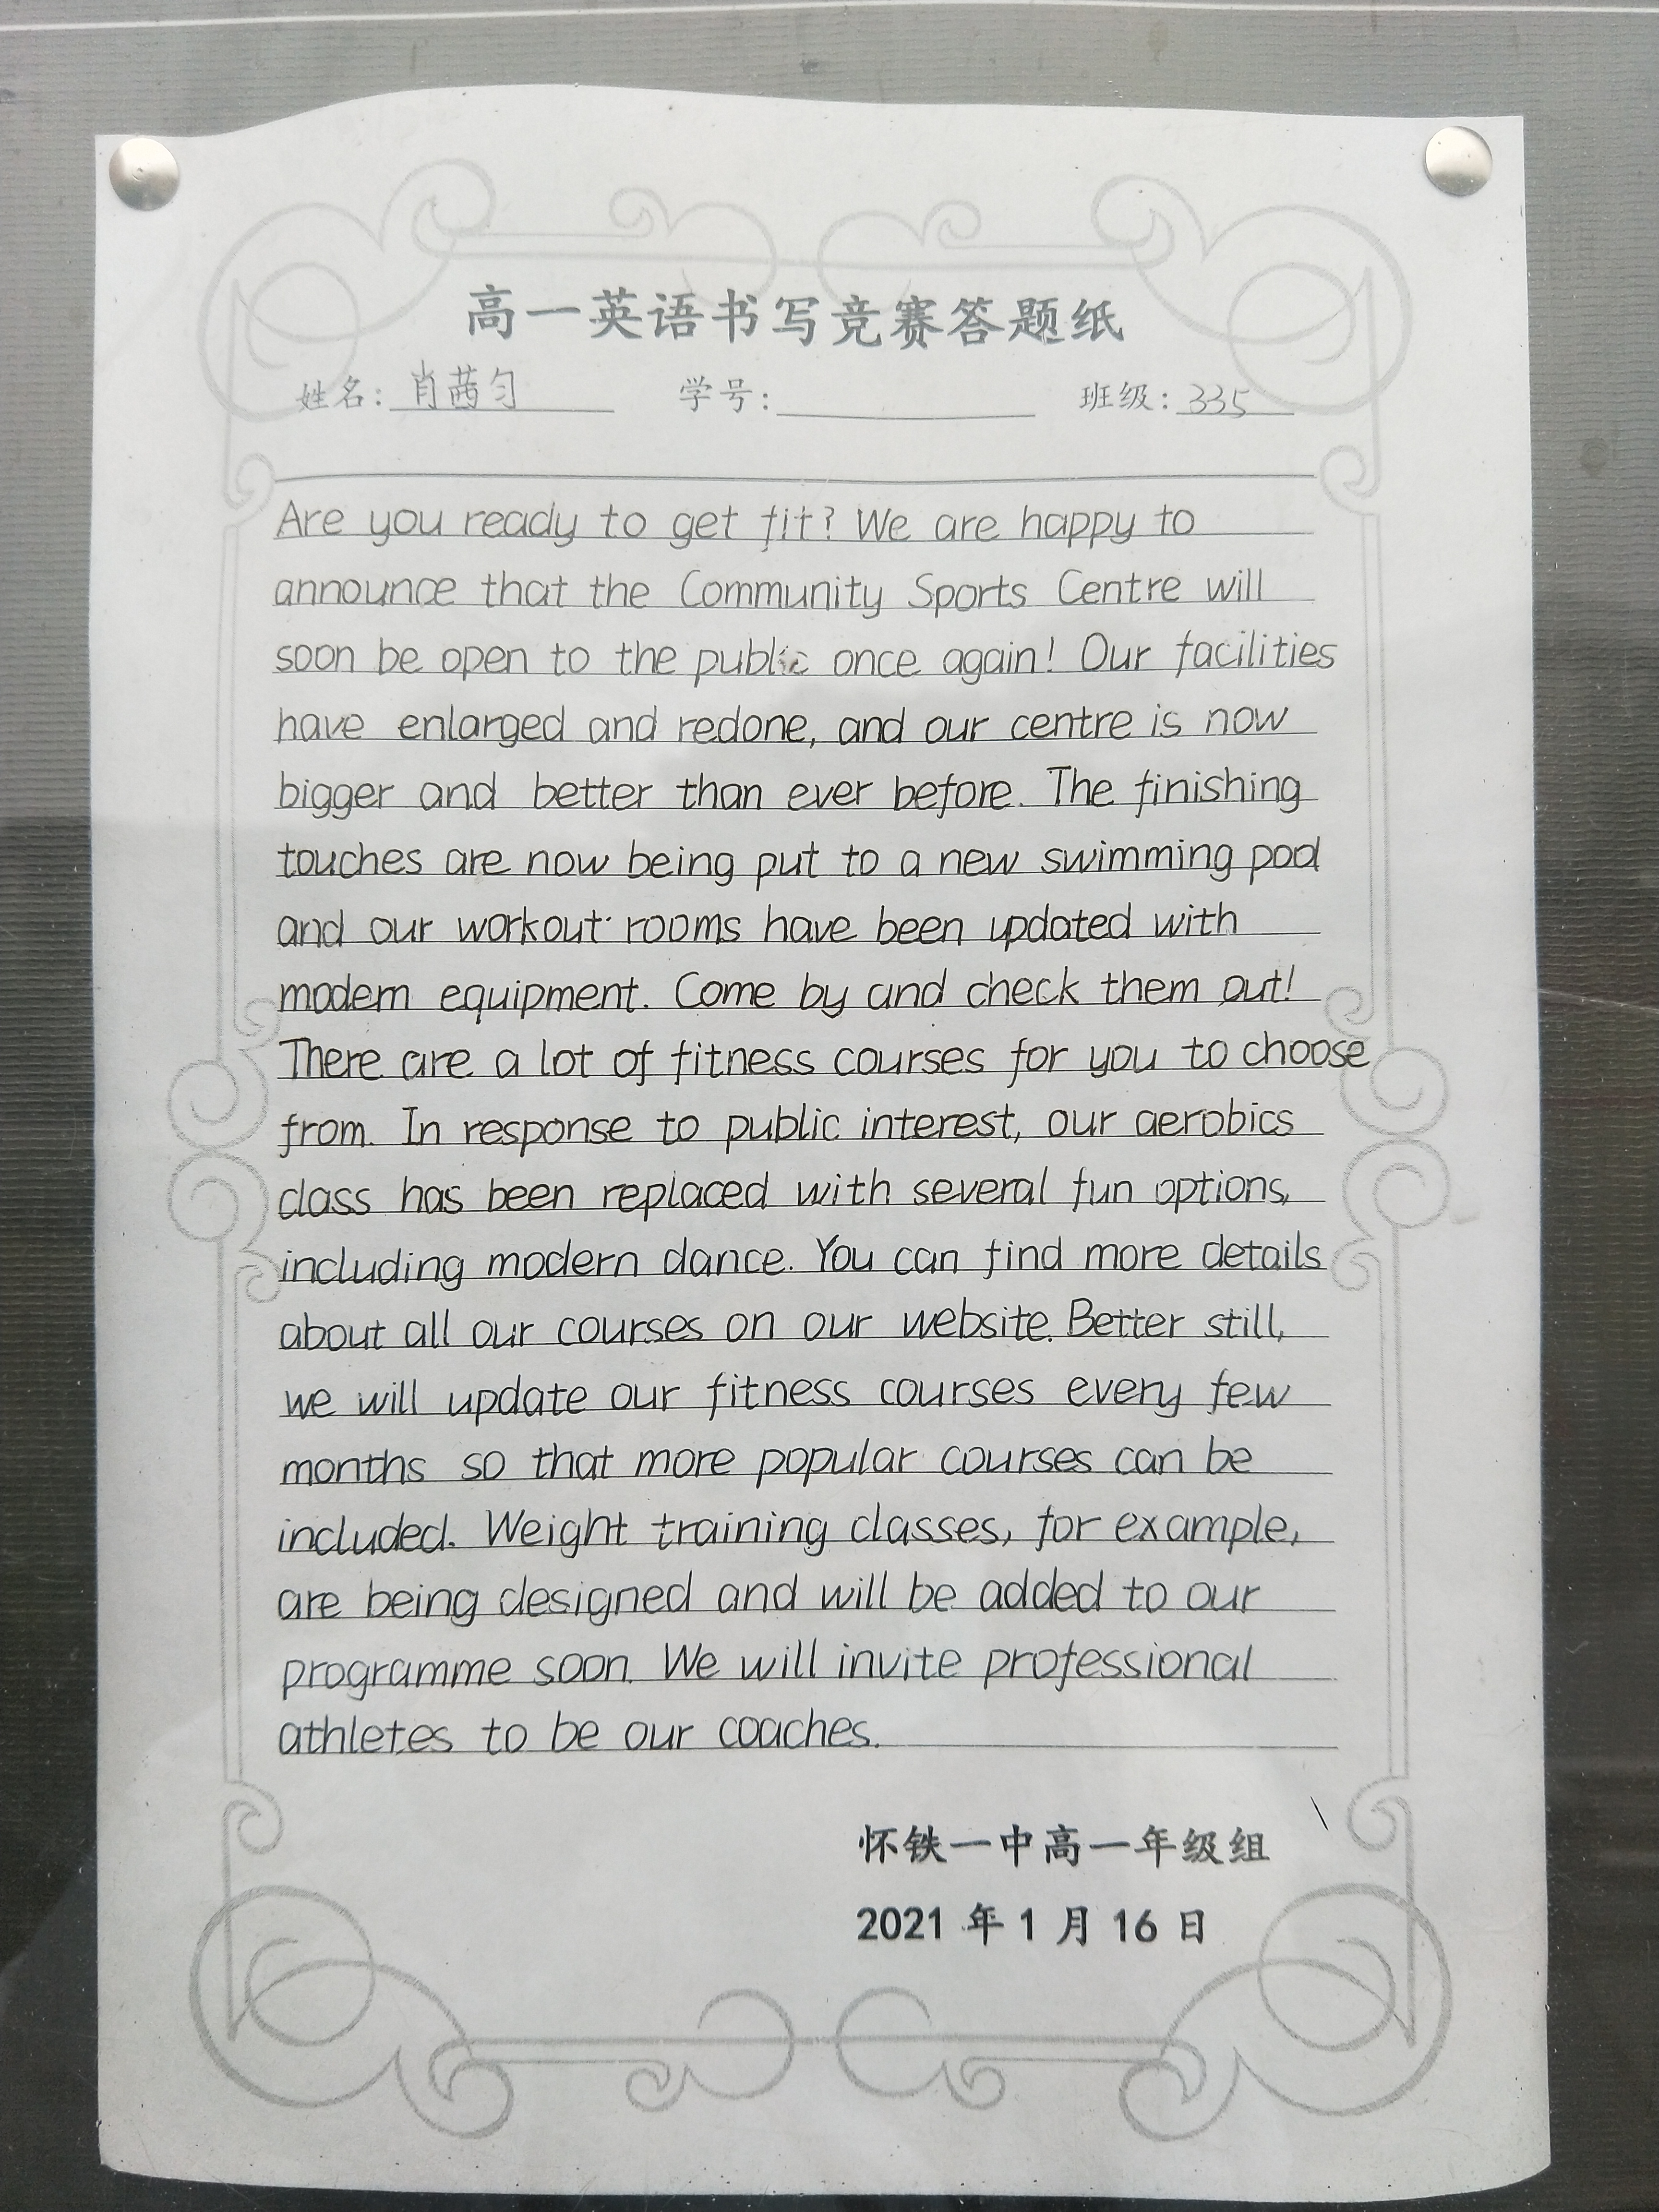 高一英语书写竞赛答题纸
姓名: 肖茜匀 学号: 班级: 335
Are you ready to get fit? We are happy to
announce that the Community Sports Centre will
soon be open to the public once again! Our facilities
have enlarged and redone, and our centre is now
bigger and better than ever before. The finishing
touches are now being put to a new swimming pool
and our workout rooms have been updated with
modern equipment. Come by and check them out!
There are a lot of fitness courses for you to choose
from. In response to public interest, our aerobics
class has been replaced with several fun options,
including modern dance. You can find more details
about all our courses on our website. Better still,
we will update our fitness courses every few
months so that more popular courses can be
included. Weight training classes, for example,
are being designed and will be added to our
programme soon. We will invite professional
athletes to be our coaches.
怀铁一中高一年级组
2021 年 1 月 16 日